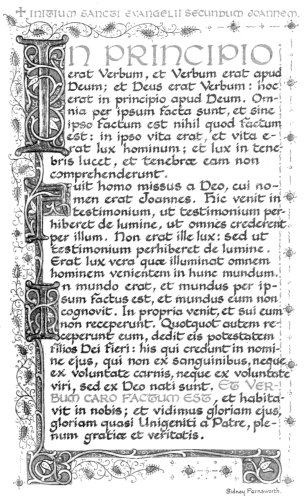 ✠ INITIUM SANCTI EVANGELII SECUNDUM JOANNEM.
IN PRINCIPIO
erat Verbum, et Verbum erat apud
Deum; et Deus erat Verbum: hoc
erat in principio apud Deum. Om-
nia per ipsum facta sunt, et sine
ipso factum est nihil quod factum
est: in ipso vita erat, et vita e-
rat lux hominum; et lux in tene-
bris lucet, et tenebræ eam non
comprehenderunt.
Fuit homo missus a Deo, cui no-
men erat Joannes. Hic venit in
testimonium, ut testimonium per-
hiberet de lumine, ut omnes crederent
per illum. Non erat ille lux: sed ut
testimonium perhiberet de lumine.
Erat lux vera quæ illuminat omnem
hominem venientem in hunc mundum.
In mundo erat, et mundus per ip-
sum factus est, et mundus eum non
cognovit. In propria venit, et sui eum
non receperunt. Quotquot autem re-
ceperunt eum, dedit eis potestatem
filios Dei fieri: his qui credunt in nomi-
ne ejus, qui non ex sanguinibus, neque
ex voluntate carnis, neque ex voluntate
viri, sed ex Deo nati sunt. ET VER-
BUM CARO FACTUM EST, et habita-
vit in nobis; et vidimus gloriam ejus,
gloriam quasi Unigeniti a Patre, ple-
num gratiæ et veritatis.
Sidney Farnsworth.